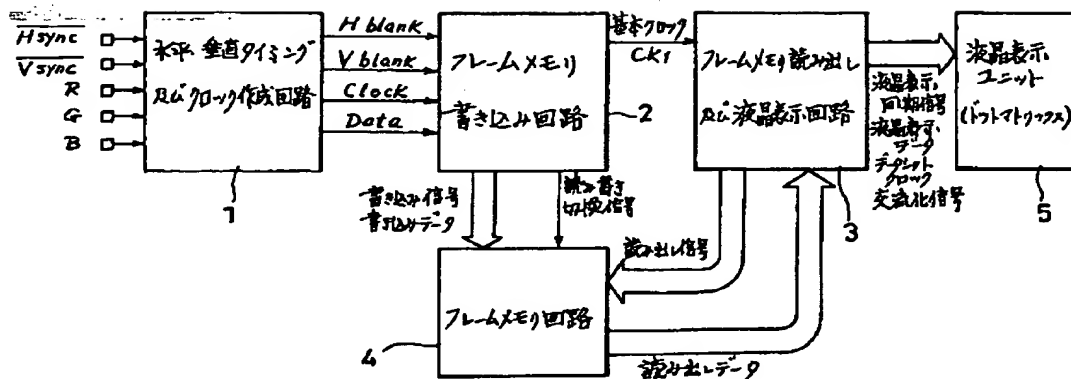 Hsync
Vsync
R
G
B
水平 垂直タイミング
及びクロック作成回路
1
H blank
V blank
Clock
Data
フレームメモリ
書き込み回路
2
基本クロック
CK1
フレームメモリ読み出し
及び液晶表示回路
3
液晶表示
同期信号
液晶表示
データ
データシフト
クロック
交流化信号
液晶表示
ユニット
(ドットマトリックス)
5
書き込み信号
書き込みデータ
読み書き
切換信号
読み出し信号
フレームメモリ回路
4
読み出しデータ